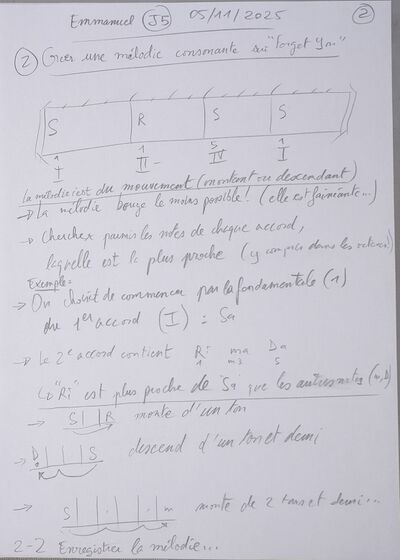 Emmanuel J5 05/11/2025 2
2 Créer une mélodie consonante sur "Forget You"
S R S S
1 1 5 1
I II - IV I
La mélodie c'est du mouvement (montant ou descendant)
→ La mélodie bouge le moins possible! (elle est fainéante...)
→ Chercher parmi les notes de chaque accord,
laquelle est la plus proche (y compris dans les
Exemple:
→ On choisit de commencer par la fondamentale (1)
du 1er accord (I) : Sa
→ Le 2e accord contient Ri ma Da
1 m3 5
↳ "Ri" est plus proche de "Sa" que les autres notes (m, D)
→ S | | R monte d'un ton
→ D | | | S descend d'un ton et demi
→ S | . | . | . m monte de 2 tons et demi...
2-2 Enregistrer la mélodie...